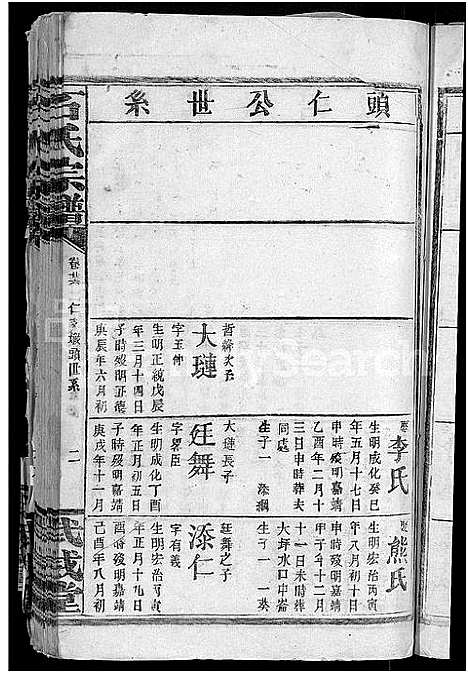 頭仁公世系
石氏宗譜
仁
頭世系
二
武威堂
大璉
字玉
生明正統戊辰
年三月十四日
子時歿明正德
庚辰年六月初
娶李氏
生明成化癸巳
年五月十七日
申時歿明嘉靖
乙酉年二月十
三日申時葬夫
同處
生子一
大璉長子
廷舞
字
臣
生明成化丁酉
年正月初五日
子時歿明嘉靖
庚戌年十一月
娶熊氏
生明宏治丙寅
年八月初十日
申時歿明嘉靖
甲子年十二月
十一日未時葬
大坪水口中崙
生子一
廷舞之子
添仁
字有義
生明宏治丙寅
年正月十九日
酉時歿明嘉靖
己酉年八月初